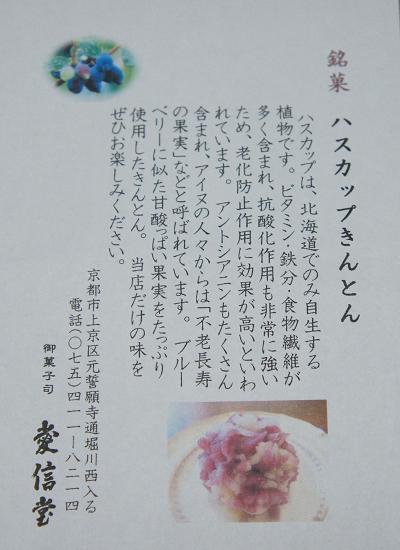 銘菓 ハスカップきんとん
ハスカップは、北海道でのみ自生する
植物です。ビタミン・鉄分・食物繊維が
多く含まれ、抗酸化作用も非常に強い
ため、老化防止作用に効果が高いといわ
れています。アントシアニンもたくさん
含まれ、アイヌの人々からは「不老長寿
の果実」などと呼ばれています。ブルー
ベリーに似た甘酸っぱい果実をたっぷり
使用したきんとん。当店だけの味を
ぜひお楽しみください。
京都市上京区元誓願寺通堀川西入る
電話(〇七五)四一一ー八二一四
御菓子司 愛信堂